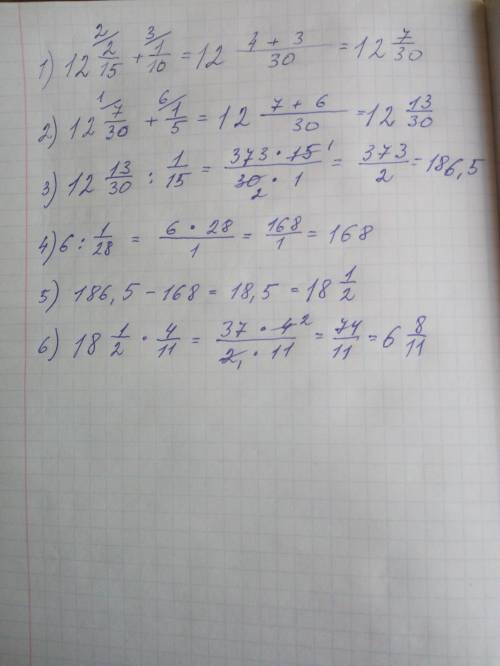 1) 12 2/15 ²⁄ + 1/10 ³⁄ = 12 (4 + 3)/30 = 12 7/30
2) 12 7/30 ¹⁄ + 1/5 ⁶⁄ = 12 (7 + 6)/30 = 12 13/30
3) 12 13/30 : 1/15 = (373 · 15 ¹)/(30 ₂ · 1) = 373/2 = 186,5
4) 6 : 1/28 = (6 · 28)/1 = 168/1 = 168
5) 186,5 – 168 = 18,5 = 18 1/2
6) 18 1/2 · 4/11 = (37 · 4 ²)/(2 ₁ · 11) = 74/11 = 6 8/11